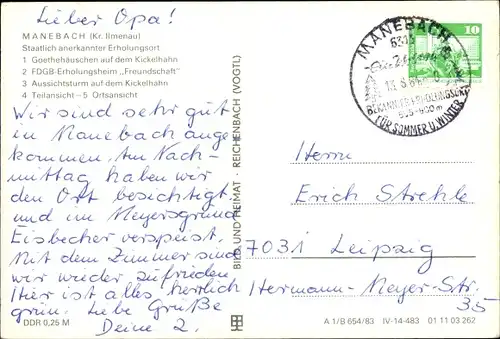 Lieber Opa!
MANEBACH (Kr. Ilmenau)
Staatlich anerkannter Erholungsort
1 Goethehäuschen auf dem Kickelhahn
2 FDGB-Erholungsheim „Freundschaft"
3 Aussichtsturm auf dem Kickelhahn
4 Teilansicht – 5 Ortsansicht
Wir sind sehr gut
in Manebach ange
kommen. Am Nach-
mittag haben wir
den Ort besichtigt
und im Meyersgrund
Eisbecher verspeist.
Mit dem Zimmer sind
wir wieder zufrieden.
Hier ist alles herrlich
grün. Liebe Grüße
Deine 2.
DDR 0,25 M
BILD UND HEIMAT · REICHENBACH (VOGTL)
MANEBACH
FÜR SOMMER U. WINTER
10
Herrn
Erich Strehle
7031 Leipzig
Hermann-Meyer-Str.
35
A 1/B 654/83 IV-14-483 01 11 03 262